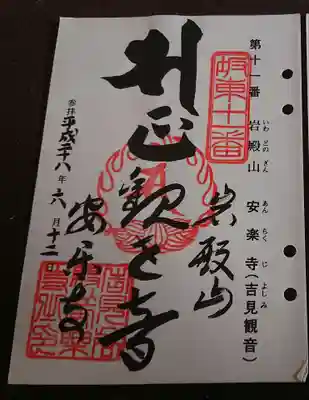 第十一番 岩殿山 安楽寺(吉見観音)
いわ どの さん あん らく じ よしみ
坂東十一番
岩殿山
正観世音
参拝 平成二十八年六月十二
安楽寺